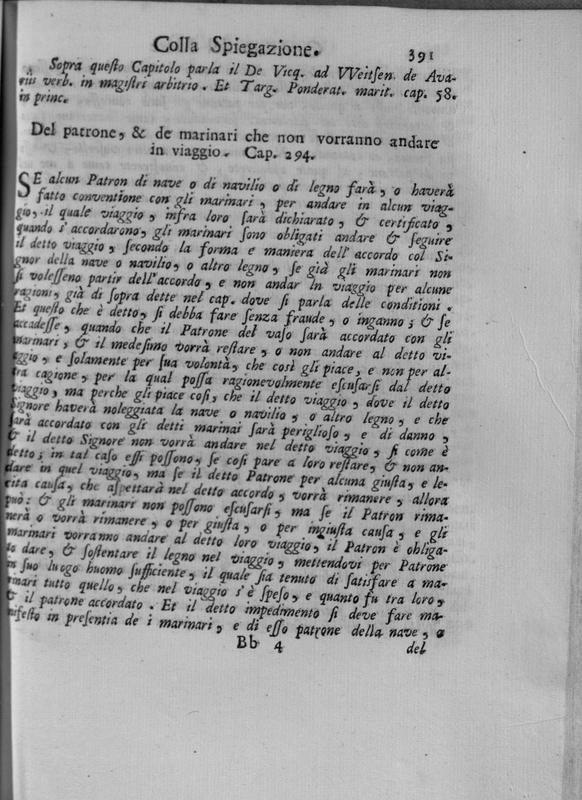 Colla Spiegazione. 391
Sopra queſto Capitolo parla il De Vicq. ad VVeitſen. de Ava-
riis verb. in magiſtri arbitrio. Et Targ. Ponderat. marit. cap. 58.
in princ.
Del patrone, & de marinari che non vorranno andare
in viaggio. Cap. 294.
SE alcun Patron di nave o di navilio o di legno farà, o haverà
fatto conventione con gli marinari, per andare in alcun viag-
gio, il quale viaggio, infra loro ſarà dichiarato, & certificato,
quando s'accordarono, gli marinari ſono obligati andare & ſeguire
il detto viaggio, ſecondo la forma e maniera dell'accordo col Si-
gnor della nave o navilio, o altro legno, ſe già gli marinari non
ſi voleſſeno partir dell'accordo, e non andar in viaggio per alcune
ragioni, già di ſopra dette nel cap. dove ſi parla delle conditioni.
Et queſto che è detto, ſi debba fare ſenza fraude, o inganno; & ſe
accadeſſe, quando che il Patrone del vaſo ſarà accordato con gli
marinari, & il medeſimo vorrà reſtare, o non andare al detto vi-
aggio, e ſolamente per ſua volontà, che così gli piace, e non per al-
tra cagione, per la qual poſſa ragionevolmente eſcuſarſi dal detto
viaggio, ma perche gli piace coſi, che il detto viaggio, dove il detto
Signore haverà noleggiata la nave o navilio, o altro legno, e che
ſarà accordato con gli detti marinai ſarà periglioſo, e di danno,
& il detto Signore non vorrà andare nel detto viaggio, ſi come è
detto; in tal caſo eſſi poſſono, ſe coſi pare a loro reſtare, & non an-
dare in quel viaggio, ma ſe il detto Patrone per alcuna giuſta, e le-
cita cauſa, che aſpettarà nel detto accordo, vorrà rimanere, allora
può: & gli marinari non poſſono eſcuſarſi, ma ſe il Patron rima-
nerà o vorrà rimanere, o per giuſta, o per ingiuſta cauſa, e gli
marinari vorranno andare al detto loro viaggio, il Patron è obliga-
to dare, & ſoſtentare il legno nel viaggio, mettendovi per Patrone
in ſuo luogo huomo ſufficiente, il quale ſia tenuto di ſatisfare a ma-
rinari tutto quello, che nel viaggio s'è ſpeſo, e quanto fu tra loro,
& il patrone accordato. Et il detto impedimento ſi deve fare ma-
nifeſto in preſentia de i marinari, e di eſſo patrone della nave, o
Bb 4 del